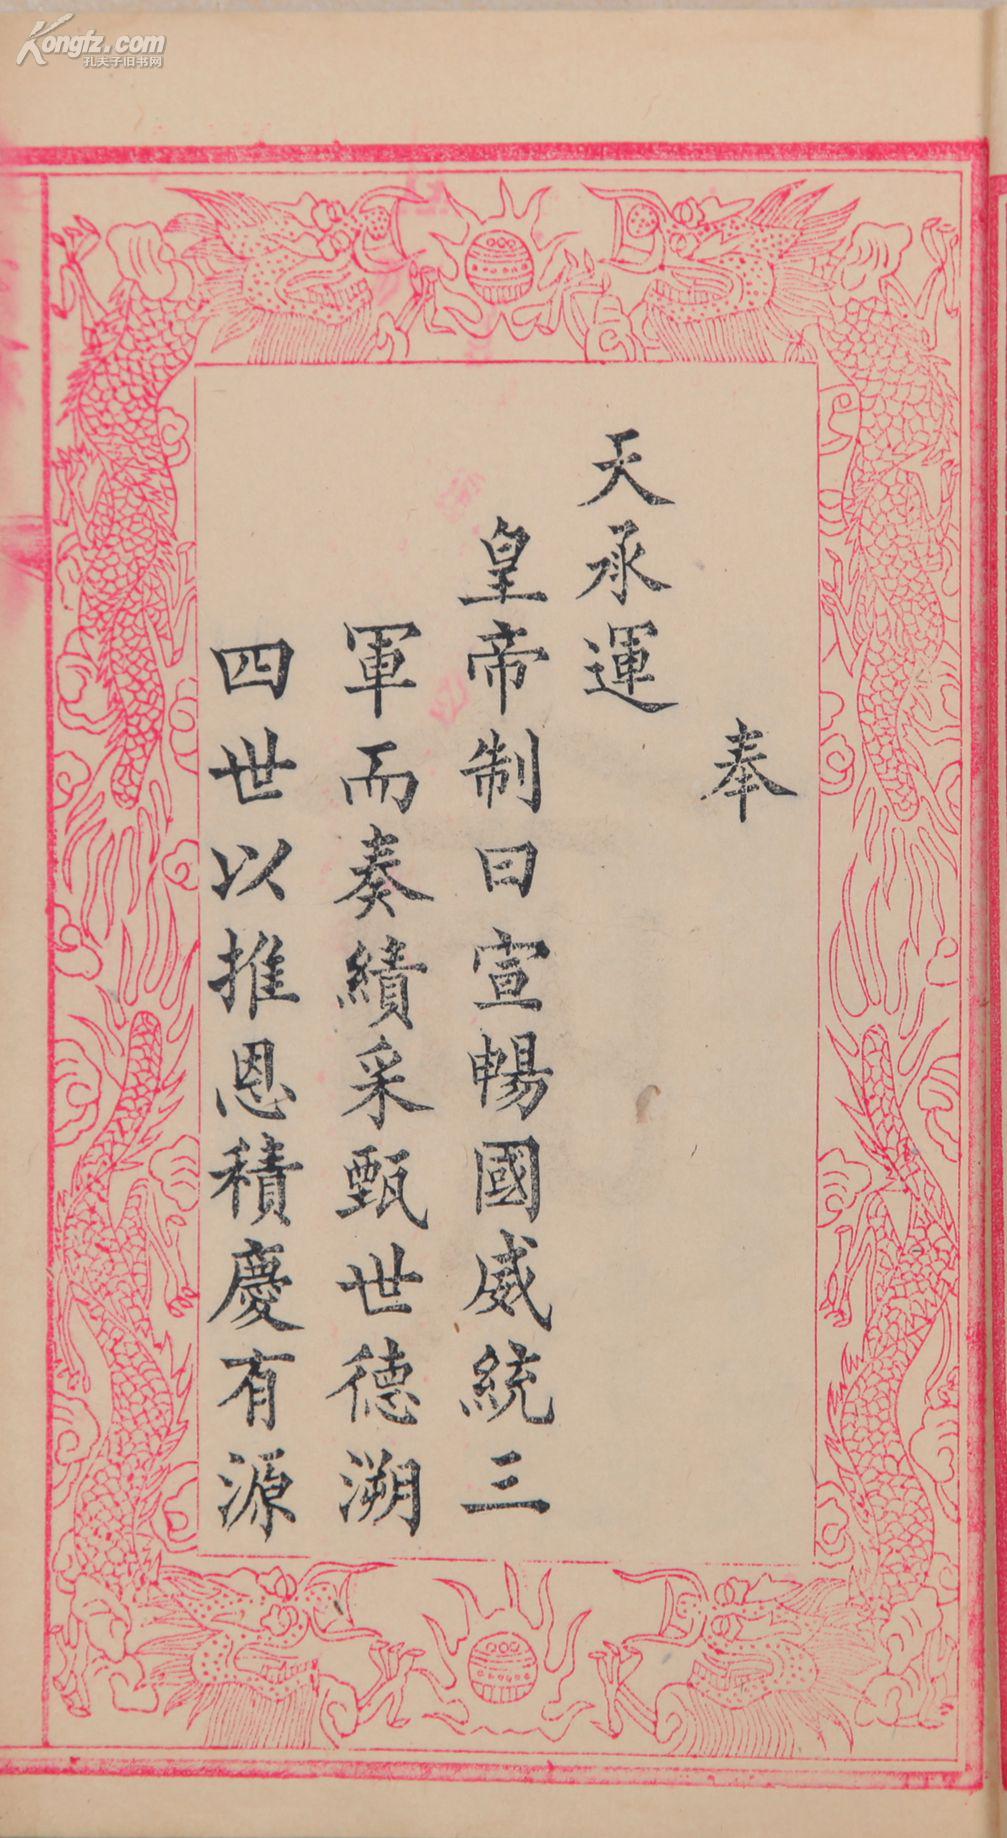 Kongfz.com
孔夫子旧书网
奉
天承運
皇帝制曰宣暢國威統三
軍而奏績采甄世德溯
四世以推恩積慶有源